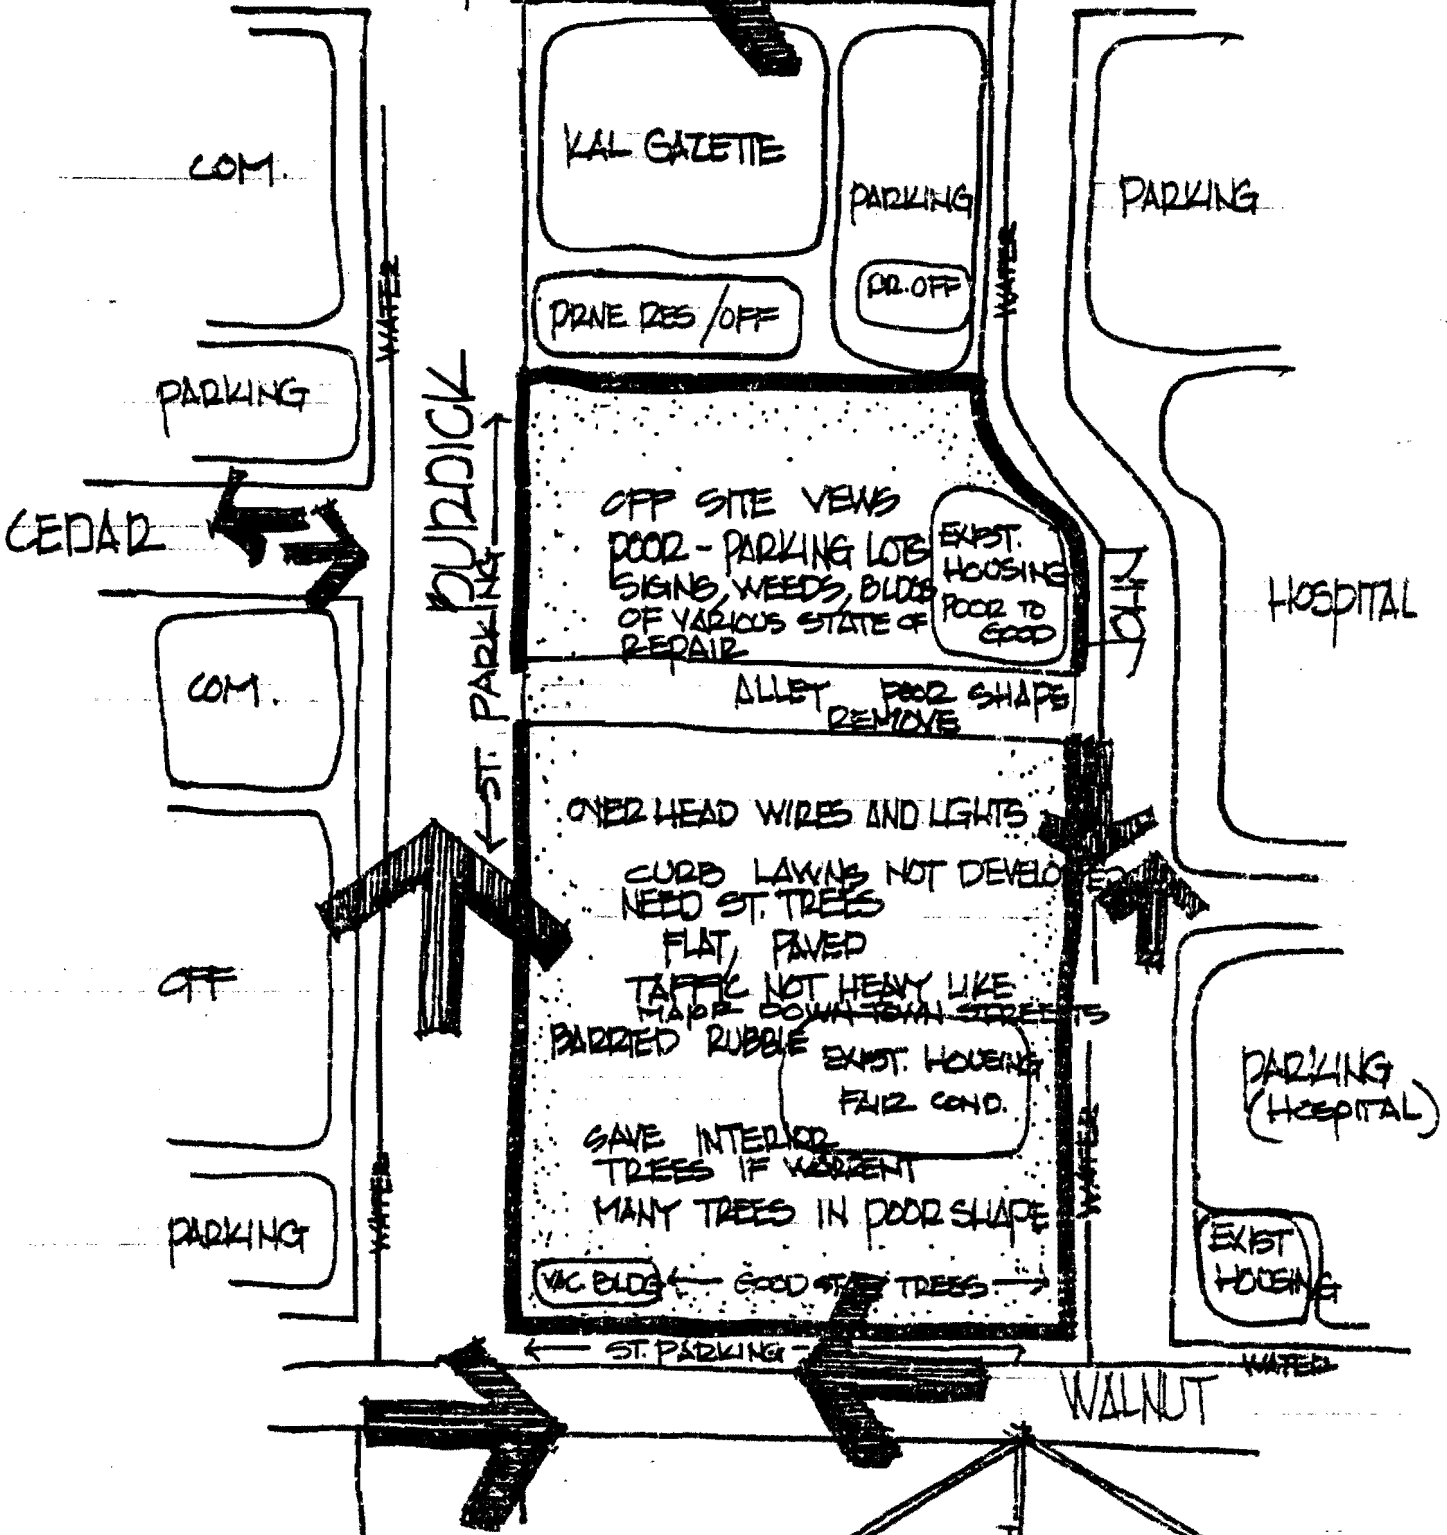 COM.
KAL GAZETTE
PARKING
PARKING
DR. OFF
WATER
WATER
PRNE RES / OFF
PARKING
BURDICK
CEDAR
OFF SITE VEWS
POOR - PARKING LOTS
SIGNS, WEEDS, BLDGS
OF VARIOUS STATE OF
REPAIR
EXIST.
HOUSING
POOR TO
GOOD
JOHN
HOSPITAL
COM.
ST. PARKING
ALLEY POOR SHAPE
REMOVE
OVER HEAD WIRES AND LIGHTS
CURB LAWNS NOT DEVELOPED
NEED ST. TREES
FLAT, PAVED
OFF
TAFFIC NOT HEAVY LIKE
MAJOR DOWN TOWN STREETS
BARRIED RUBBLE
EXIST. HOUSING
FAIR COND.
PARKING
(HOSPITAL)
SAVE INTERIOR
TREES IF WORRENT
MANY TREES IN POOR SHAPE
WATER
WATER
PARKING
EXIST
HOUSING
VAC BLDG
GOOD STREET TREES
ST. PARKING
WATER
WALNUT